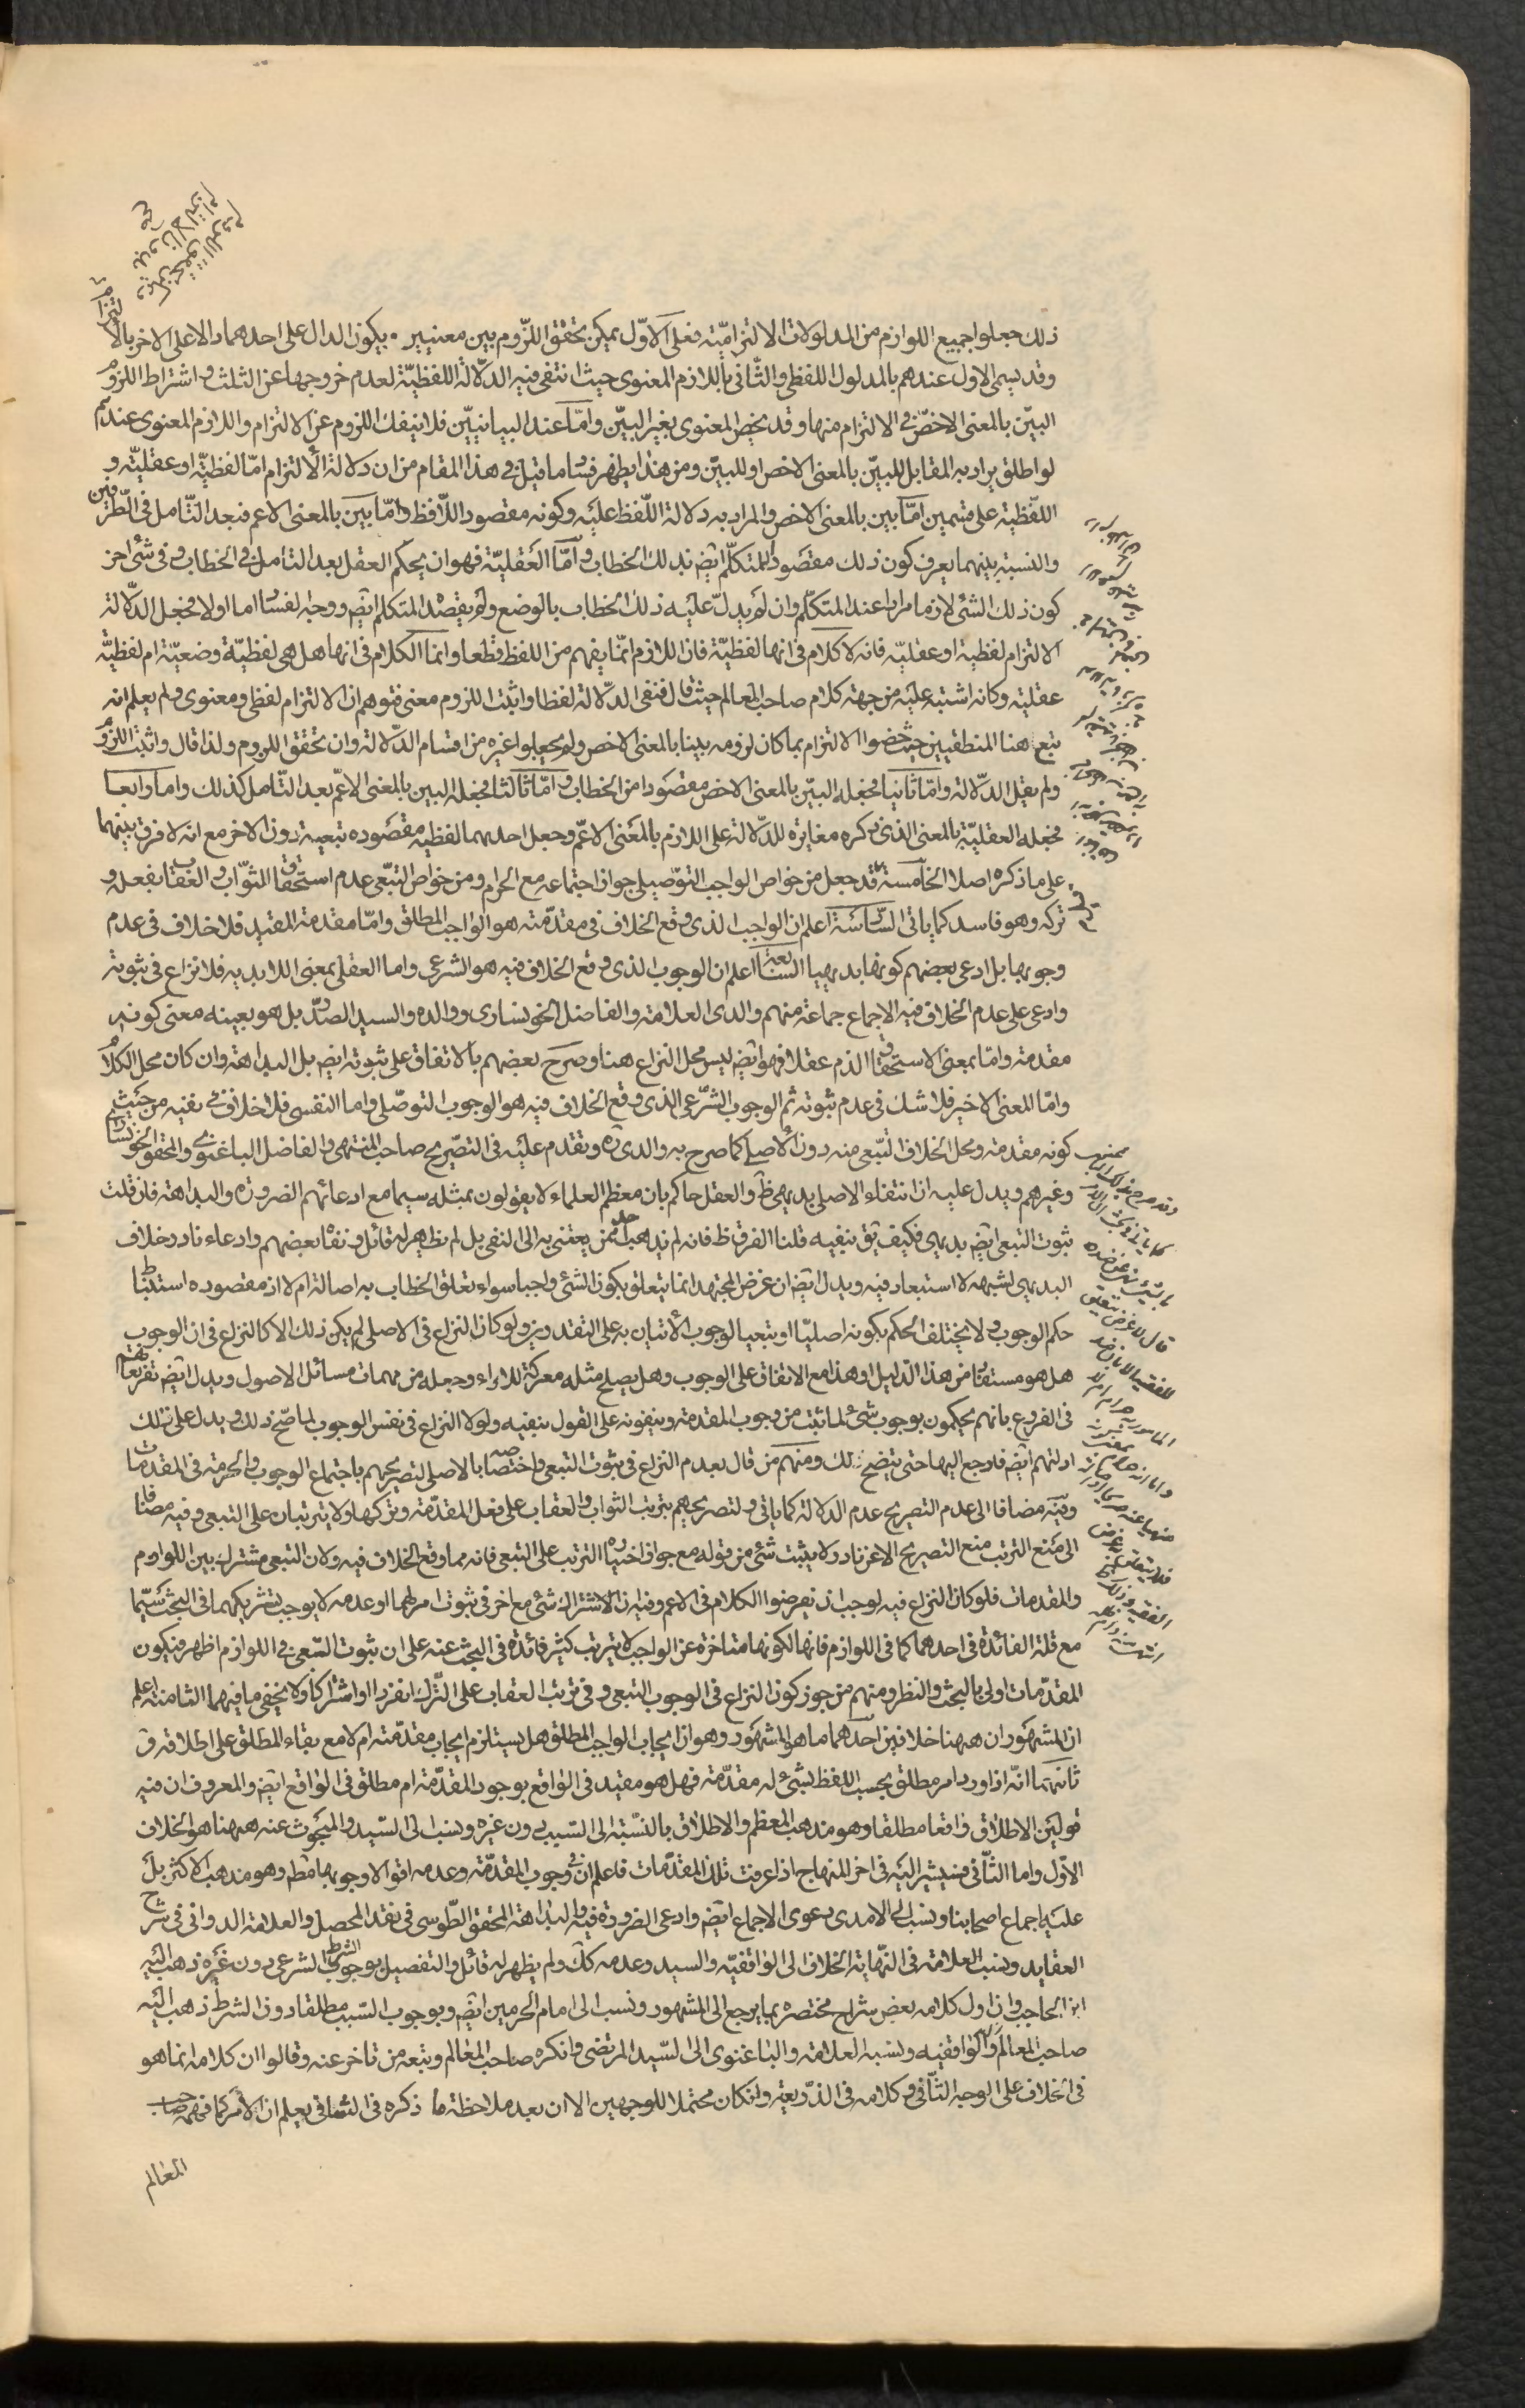 ذلك جعلوا جميع اللوازم من المدلولات الالتزاميّة فعلى الاوّل يمكن تحقق اللزوم بين معنيين و يكون الدال على احدهما دالا على الاخر بالالتزام
وقد يسمى الاول عندهم بالمدلول اللفظى والثانى باللازم المعنوى حيث انتفى فيه الدّلالة اللفظيّة لعدم خروجها عن الثلث و اشتراط اللزوم
البيّن بالمعنى الاخصّ فى الالتزام منها وقد يخص المعنوى بغير البيّن وامّا عند البيانيّين فلا ينفك اللزوم عن الالتزام واللازم المعنوى عندهم
لو اطلق يراد به المقابل للبيّن بالمعنى الاخص او للبيّن ومن هنا يظهر فساد ما قيل فى هذا المقام من ان دلالة الالتزام امّا لفظيّة او عقليّة و
اللّفظية على قسمين امّا بين بالمعنى الاخص والمراد به دلالة اللّفظ عليه وكونه مقصود اللّافظ وامّا بين بالمعنى الاعم فبعد التّامل فى الطّرفين
والنسبة بينهما يعرف كون ذلك مقصود المتكلّم ايضا بذلك الخطاب و امّا العقليّة فهو ان يحكم العقل بعد التامل فى الخطاب و فى شئ اخر
كون ذلك الشئ لازما مرادا عند المتكلّم وان لم يدلّ عليه ذلك الخطاب بالوضع ولم يقصده المتكلم ايضا و وجه الفساد اما اولا فجعل الدّلالة
الالتزام لفظية او عقليّة فانه لا كلام فى انها لفظيّة فان اللازم انمّا يفهم من اللفظ قطعا وانما الكلام فى انها هل هى لفظيّة وضعيّة ام لفظيّة
عقلية وكانه اشتبه عليه من جهة كلام صاحب المعالم حيث قال فنفى الدّلالة لفظا واثبت اللزوم معنى فتوهم ان الالتزام لفظى ومعنوى ولم يعلم انه
تبع هنا المنطقيين حيث خصّوا الالتزام بما كان لزومه بينا بالمعنى الاخص ولم يجعلوا غيره من اقسام الدّلالة وان تحقق اللزوم ولذا قال واثبت اللزوم
ولم يقل الدّلالة وامّا ثانيا فجعله البيّن بالمعنى الاخص مقصودا من الخطاب و امّا ثالثا فجعله البين بالمعنى الاعمّ بعد التّامل كذلك واما رابعا
فجعله العقليّة بالمعنى الذى ذكره مغايرة للدّلالة على اللازم بالمعنى الاعمّ وجعل احدهما لفظية مقصوده تبعية دون الاخر مع انه لا فرق بينهما
على ما ذكره اصلا الخامسة قد جعل من خواص الواجب التوصّلى جواز اجتماعه مع الحرام ومن خواص التبعّى عدم استحقاق الثّواب و العقاب بفعله و
تركه وهو فاسد كما ياتى السّادسة اعلم ان الواجب الذى وقع الخلاف فى مقدّمته هو الواجب المطلق وامّا مقدمة المقيد فلا خلاف فى عدم
وجوبها بل ادعى بعضهم كونها بديهيا السابعة اعلم ان الوجوب الذى وقع الخلاف فيه هو الشرعى واما العقلى بمعنى اللابدية فلا نزاع فى ثبوته
وادعى على عدم الخلاف فيه الاجماع جماعة منهم والدى العلامة والفاضل الخونسارى و والده والسيد الصّدر بل هو بعينه معنى كونه
مقدمة وامّا بمعنى الاستحقاق الذم عقلا فهو ايضا ليس محل النزاع هنا و صرح بعضهم بالاتفاق على ثبوته ايضا بل البداهة وان كان محل الكلام
وامّا المعنى الاخير فلا شك فى عدم ثبوته ثم الوجوب الشرّعى الذى وقع الخلاف فيه هو الوجوب التوصّلى واما النفسى فلا خلاف فى نفيه من حيث
كونه مقدمة ومحل الخلاف التّبعى منه دون الاصلى كما صرح به والدى ره و تقدم عليه فى التصّريح صاحب المنتهى و الفاضل الباغنوى والمحقق الخونسارى
وغيرهم ويدل عليه ان انتفاء الاصلى بديهى ظ والعقل حاكم بان معظم العلماء لا يقولون بمثله سيما مع ادعائهم الضرورة والبداهة فان قلت
ثبوت التبعى ايضا بديهى فكيف يق بنفيه قلنا الفرق ظ فانه لم يذهب احد ممن يعتنى به الى النفى بل لم نظهر له قائل و نقله بعضهم وادعاء نادر خلاف
البديهى لشبهة لا استبعاد فيه ويدل ايضا ان غرض المجتهد انما يتعلق بكون الشئ واجبا سواء تعلق الخطاب به اصالة ام لا اذ مقصوده استنباط
حكم الوجوب ولا يختلف الحكم بكونه اصليّا او تبعيا لوجوب الاتيان به على التقديرين ولو كان النزاع فى الاصلى لم يكن ذلك الا كالنزاع فى ان الوجوب
هل هو مستفاد من هذا الدّليل او هذا مع الاتفاق على الوجوب وهل يصلح مثله معركة للاراء وجعله من مهمات مسائل الاصول و يدل ايضا تفريعاتهم
فى الفروع بانهم يحكمون بوجوب شئ لما ثبت من وجوب المقدمة وينفونه على القول بنفيه ولولا النزاع فى نفس الوجوب لما صّح ذلك و يدل على ذلك
ادلتهم ايضا فارجع اليها حتى يتضح ذلك ومنهم من قال بعدم النزاع فى ثبوت التبعى و اختصاصه بالاصلى لتصريحهم باجتماع الوجوب و الحرمة فى المقدمات
وفيه مضافا الى عدم التصريح عدم الدلالة كما ياتى ولتصريحهم بترتب الثواب و العقاب على فعل المقدّمة و تركها ولا يترتبان على التبعى وفيه مضافا
الى منع الترتب منع التصريح الا عن نادر ولا يثبت شئ من قوله مع جواز اختياره الترتب على التبعى فانه مما وقع الخلاف فيه ولان التبعى مشترك بين اللوازم
والمقدمات فلو كان النزاع فيه لوجب ان يعرضوا الكلام فى الاعم وفيه ان الاشتراك شئ مع اخر فى ثبوت امر لهما او عدمه لا يوجب تشريكهما فى البحث سيّما
مع قلة الفائدة فى احدهما كما فى اللوازم فانها لكونها متاخرة عن الواجب لا يترتب كثير فائدة فى البحث عنه على ان ثبوت التبعى فى اللوازم اظهر فيكون
المقدّمات اولى بالبحث والنظر ومنهم من جوز كون النزاع فى الوجوب التبعى و فى ترتب العقاب على التّرك انفرادا او اشتراكا ولا يخفى ما فيهما الثامنة اعلم
ان المشهور ان ههنا خلافين احدهما ما هو المشهور وهو ان ايجاب الواجب المطلق هل يستلزم ايجاب مقدّمته ام لا مع بقاء المطلق على اطلاقه و
ثانيهما انّه اذا ورد امر مطلق بحسب اللفظ بشئ له مقدّمة فهل هو مقيد فى الواقع بوجود المقدّمة ام مطلق فى الواقع ايضا والمعروف ان فيه
قولين الاطلاق واقعا مطلقا وهو مذهب المعظم والاطلاق بالنسّبة الى السّبب دون غيره ونسب الى السّيد والمبحوث عنه ههنا هو الخلاف
الاوّل واما الثّانى فنشير اليه فى اخر المنهاج اذا عرفت تلك المقدّمات فاعلم ان فى وجوب المقدّمة وعدمه اقوالا وجوبها مطم وهو مذهب الاكثر بل
عليه اجماع اصحابنا ونسب الى الامدى دعوى الاجماع ايضا وادعى الضرورة فيه والبداهة المحقق الطّوسى فى نقد المحصل والعلامة الدوانى فى شرح
العقايد ونسب العلامة فى النّهاية الخلاف الى الواقفيّة والسيد وعدمه كك ولم يظهر له قائل والتفصيل بوجوب الشرط الشرعى دون غيره ذهب اليه
ابن الحاجب وان اول كلامه بعض شراح مختصره بما يرجع الى المشهور ونسب الى امام الحرمين ايضا و بوجوب السّبب مطلقا دون الشرط ذهب اليه
صاحب المعالم و الواقفيه ونسبه العلامة والباغنوى الى السّيد المرتضى وانكره صاحب المعالم وتبعه من تاخر عنه وقالوا ان كلامه انما هو
فى الخلاف على الوجه الثّانى و كلامه فى الذّريعة وان كان محتملا للوجهين الا ان بعد ملاحظة ما ذكره فى الشافى يعلم ان الامر كما فهمه صاحب
المعالم